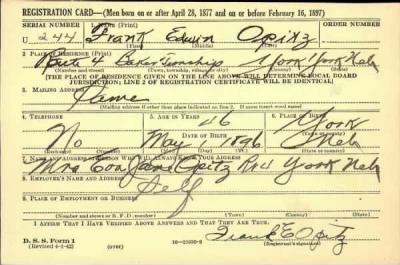 REGISTRATION CARD—(Men born on or after April 28, 1877 and on or before February 16, 1897)
SERIAL NUMBER 1. NAME (Print) ORDER NUMBER
U 244 Frank Edwin Opitz
(First) (Middle) (Last)
2. PLACE OF RESIDENCE (Print)
Route 4 Baker Township York York Neb
(Number and street) (Town, township, village, or city) (County) (State)
[THE PLACE OF RESIDENCE GIVEN ON THE LINE ABOVE WILL DETERMINE LOCAL BOARD
JURISDICTION; LINE 2 OF REGISTRATION CERTIFICATE WILL BE IDENTICAL]
3. MAILING ADDRESS
Same
[Mailing address if other than place indicated on line 2. If same insert word same]
4. TELEPHONE 5. AGE IN YEARS 6. PLACE OF BIRTH
46 York
DATE OF BIRTH
No May 1896 Neb
(Mo.) (Day) (Yr.)
7. NAME AND ADDRESS OF PERSON WHO WILL ALWAYS KNOW YOUR ADDRESS
Mrs Jane Opitz York Neb
8. EMPLOYER'S NAME AND ADDRESS
Self
9. PLACE OF EMPLOYMENT OR BUSINESS
(Number and street or R. F. D. number) (Town) (County) (State)
I AFFIRM THAT I HAVE VERIFIED ABOVE ANSWERS AND THAT THEY ARE TRUE.
Frank E Opitz
D. S. S. Form 1
(Revised 4-1-42) (over) (Registrant's signature)